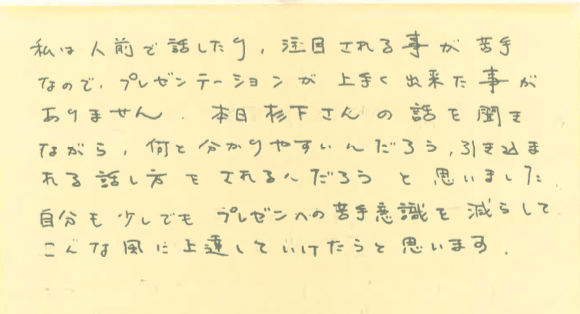 私は人前で話したり，注目される事が苦手
なので，プレゼンテーションが上手く出来た事が
ありません．本日杉下さんの話を聞き
ながら，何と分かりやすいんだろう，引き込ま
れる話し方をされるんだろうと思いました
自分も少しでもプレゼンへの苦手意識を減らして
こんな風に上達していけたらと思います．